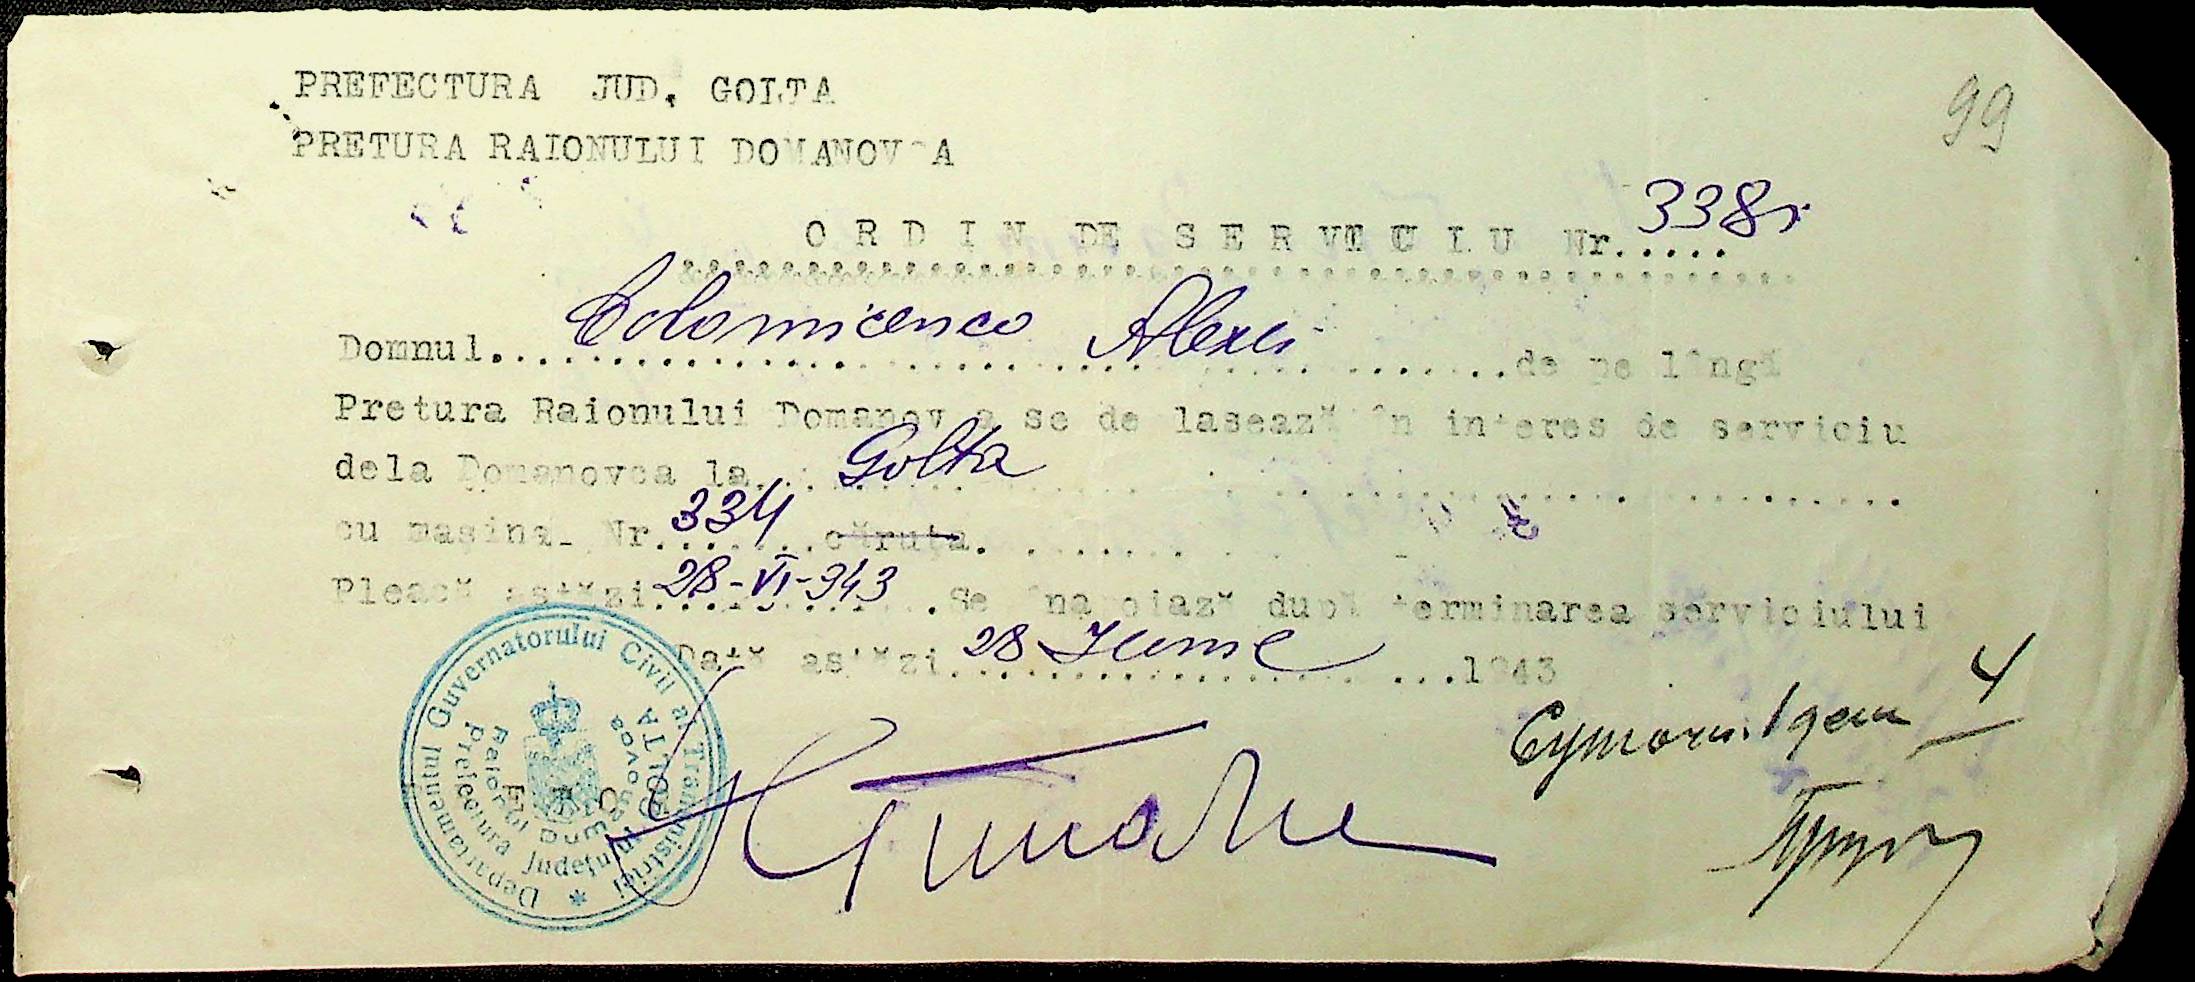 99
PREFECTURA JUD. GOLTA
PRETURA RAIONULUI DOMANOVCA
ORDIN DE SERVICIU Nr..... 338
Domnul..... Colomicenco Alexei .....de pe lîngă
Pretura Raionului Domanovca se de lasează în interes de serviciu
dela Domanovca la..... Golta .....
cu mașina Nr. 334 ..... căruța.....
Pleacă astăzi 28-VI-943 .....se înapoiază după terminarea serviciului
Dată astăzi 28 Iunie .....1943
4
Departamentul Guvernatorului Civil al Transnistriei
Prefectura Județului GOLTA